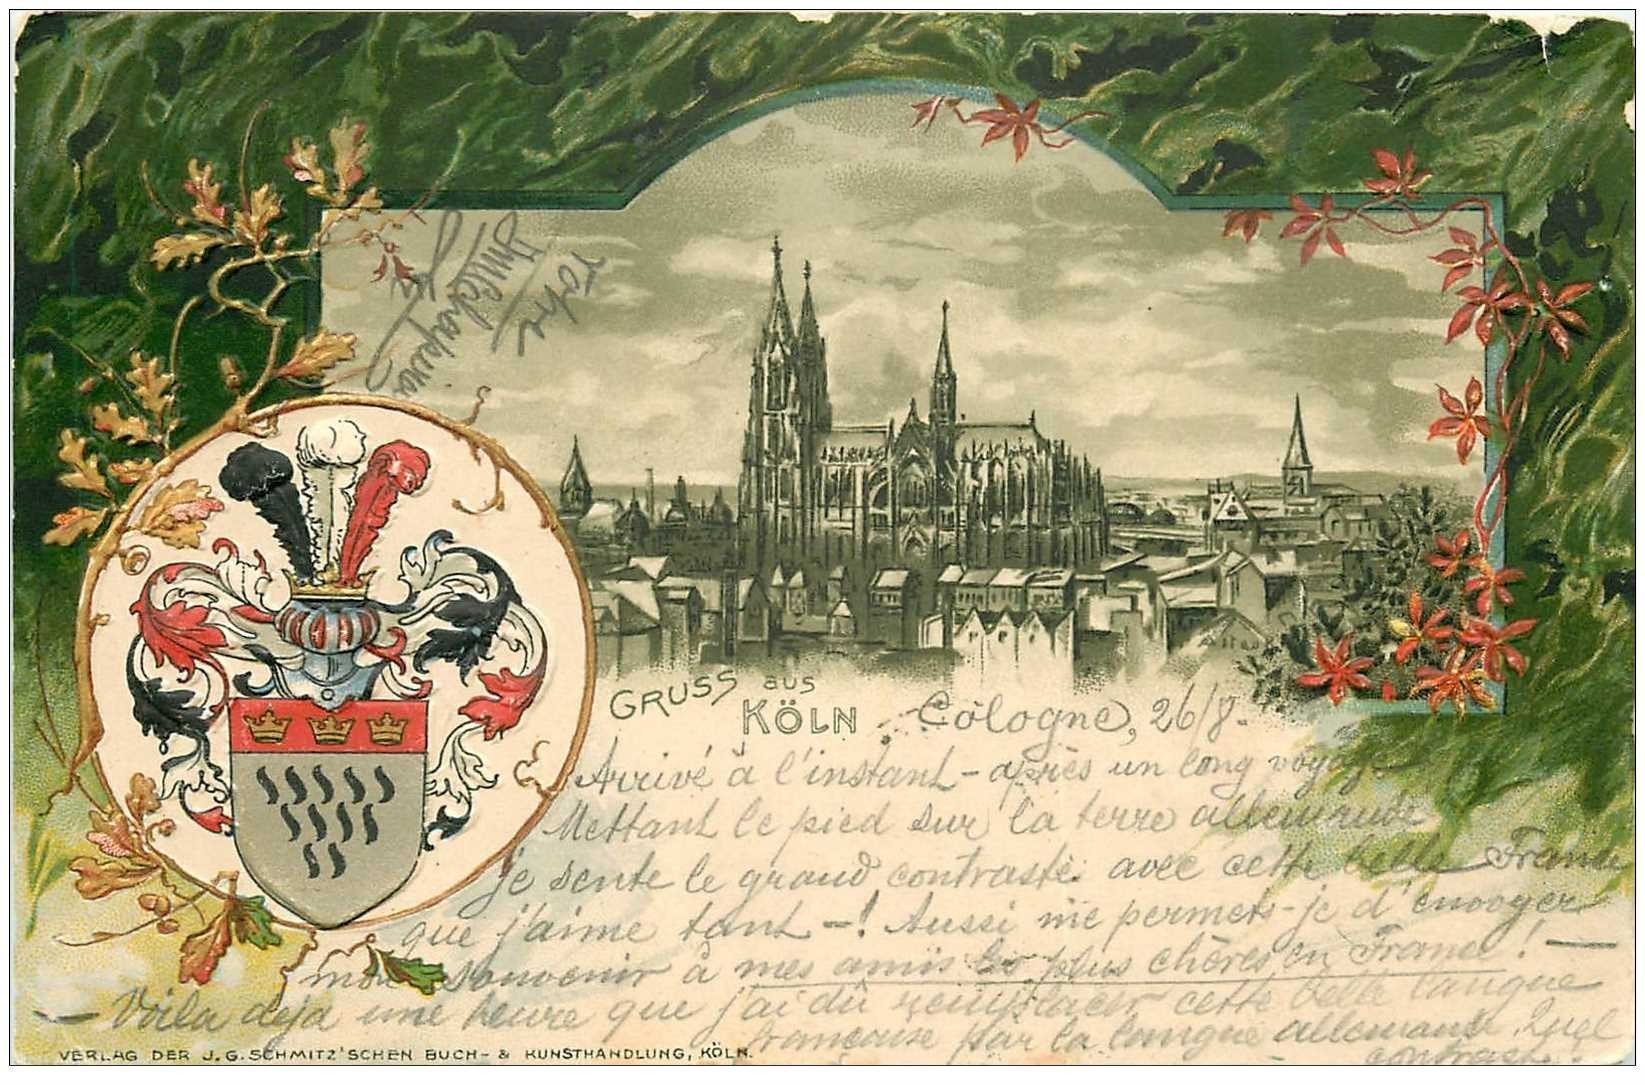 GRUSS aus
KÖLN
Cologne, 26/8.
Arrivé à l'instant - après un long voyage
Mettant le pied sur la terre allemande
je sente le grand contraste avec cette belle France
que j'aime tant -! Aussi me permets-je d'envoyer
mon souvenir à mes amis les plus chères en France! -
- Voila deja une heure que j'ai dû remplacer cette belle langue
francaise par la langue allemande. Quel
contraste!
votre
VERLAG DER J. G. SCHMITZ'SCHEN BUCH- & KUNSTHANDLUNG, KÖLN.